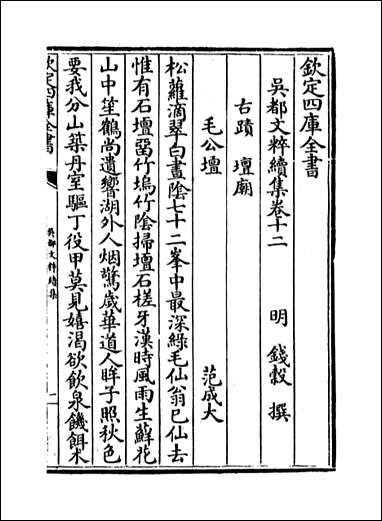 欽定四庫全書
吳都文粹續集卷十二
明 錢穀 撰
古蹟 壇廟
毛公壇 范成大
松蘿滴翠白晝陰七十二峯中最深綠毛仙翁已仙去
惟有石壇留竹塢竹陰掃壇石槎牙漢時風雨生蘚花
山中笙鶴尚遺響湖外人烟驚歲華道人眸子照秋色
要我分山築丹室驅丁役甲莫見嬉渴欲飲泉饑餌术
欽定四庫全書
吳都文粹續集
一